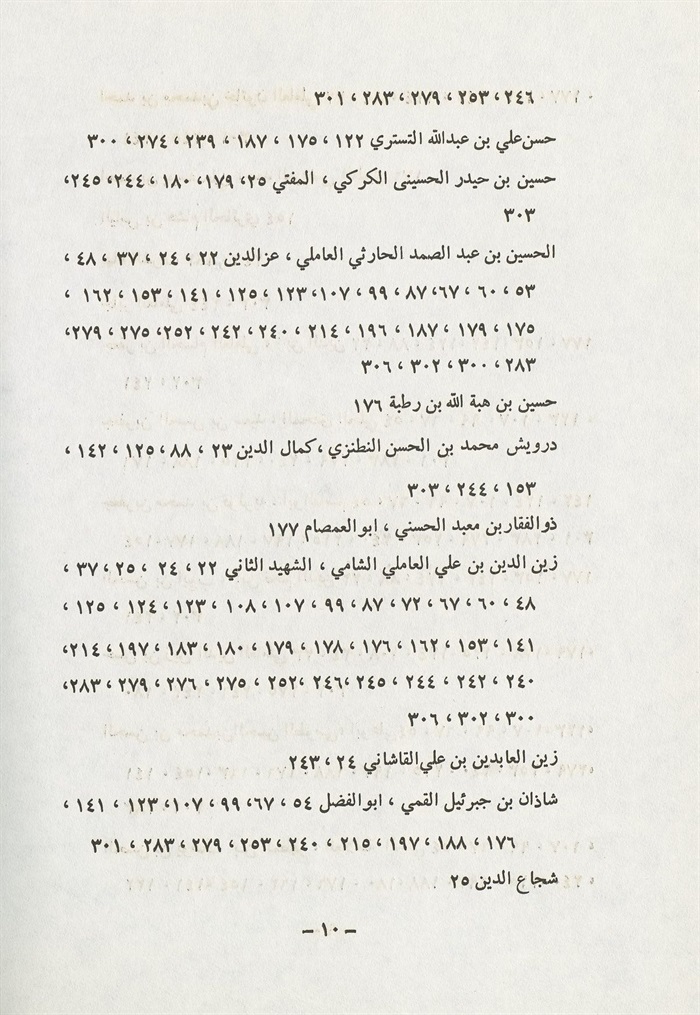 ٢٤٦ ، ٢٥٣ ، ٢٧٩ ، ٢٨٣ ، ٣٠١
حسن‌علي بن عبدالله التستري ١٢٢ ، ١٧٥ ، ١٨٧ ، ٢٣٩ ، ٢٧٤ ، ٣٠٠
حسين بن حيدر الحسينى الكركي ، المفتي ٢٥، ١٧٩، ١٨٠ ، ٢٤٤، ٢٤٥،
٣٠٣
الحسين بن عبد الصمد الحارثي العاملي ، عزالدين ٢٢ ، ٢٤ ، ٣٧ ، ٤٨ ،
٥٣ ، ٦٠ ، ٦٧، ٨٧ ، ٩٩ ، ١٠٧، ١٢٣ ، ١٢٥ ، ١٤١ ، ١٥٣ ، ١٦٢ ،
١٧٥ ، ١٧٩ ، ١٨٧ ، ١٩٦ ، ٢١٤ ، ٢٤٠ ، ٢٤٢ ، ٢٥٢، ٢٧٥ ، ٢٧٩،
٢٨٣ ، ٣٠٠ ، ٣٠٢ ، ٣٠٦
حسين بن هبة الله بن رطبة ١٧٦
درويش محمد بن الحسن النطنزي ،كمال الدين ٢٣ ، ٨٨ ، ١٢٥ ، ١٤٢ ،
١٥٣ ، ٢٤٤ ، ٣٠٣
ذوالفقاربن معبد الحسني ، ابوالعمصام ١٧٧
زين الدين بن علي العاملي الشامي ، الشهيد الثاني ٢٢ ، ٢٤ ، ٢٥ ، ٣٧ ،
٤٨ ، ٦٠ ، ٦٧ ، ٧٢ ، ٨٧ ، ٩٩ ، ١٠٧ ، ١٠٨ ، ١٢٣ ، ١٢٤ ، ١٢٥ ،
١٤١ ، ١٥٣ ، ١٦٢ ، ١٧٦ ، ١٧٨ ، ١٧٩ ، ١٨٠ ، ١٨٣ ، ١٩٧ ، ٢١٤،
٢٤٠ ، ٢٤٢ ، ٢٤٤ ، ٢٤٥ ، ٢٤٦، ٢٥٢، ٢٧٥ ، ٢٧٦ ، ٢٧٩ ، ٢٨٣،
٣٠٠ ، ٣٠٢ ، ٣٠٦
زين العابدين بن علي‌القاشاني ٢٤ ، ٢٤٣.
شاذان بن جبرئيل القمي ، ابوالفضل ٥٤ ، ٦٧، ٩٩ ، ١٠٧، ١٢٣ ، ١٤١ ،
١٧٦ ، ١٨٨ ، ١٩٧ ، ٢١٥ ، ٢٤٠ ، ٢٥٣ ، ٢٧٩ ، ٢٨٣ ، ٣٠١
شجاع الدين ٢٥
– ١٠ –